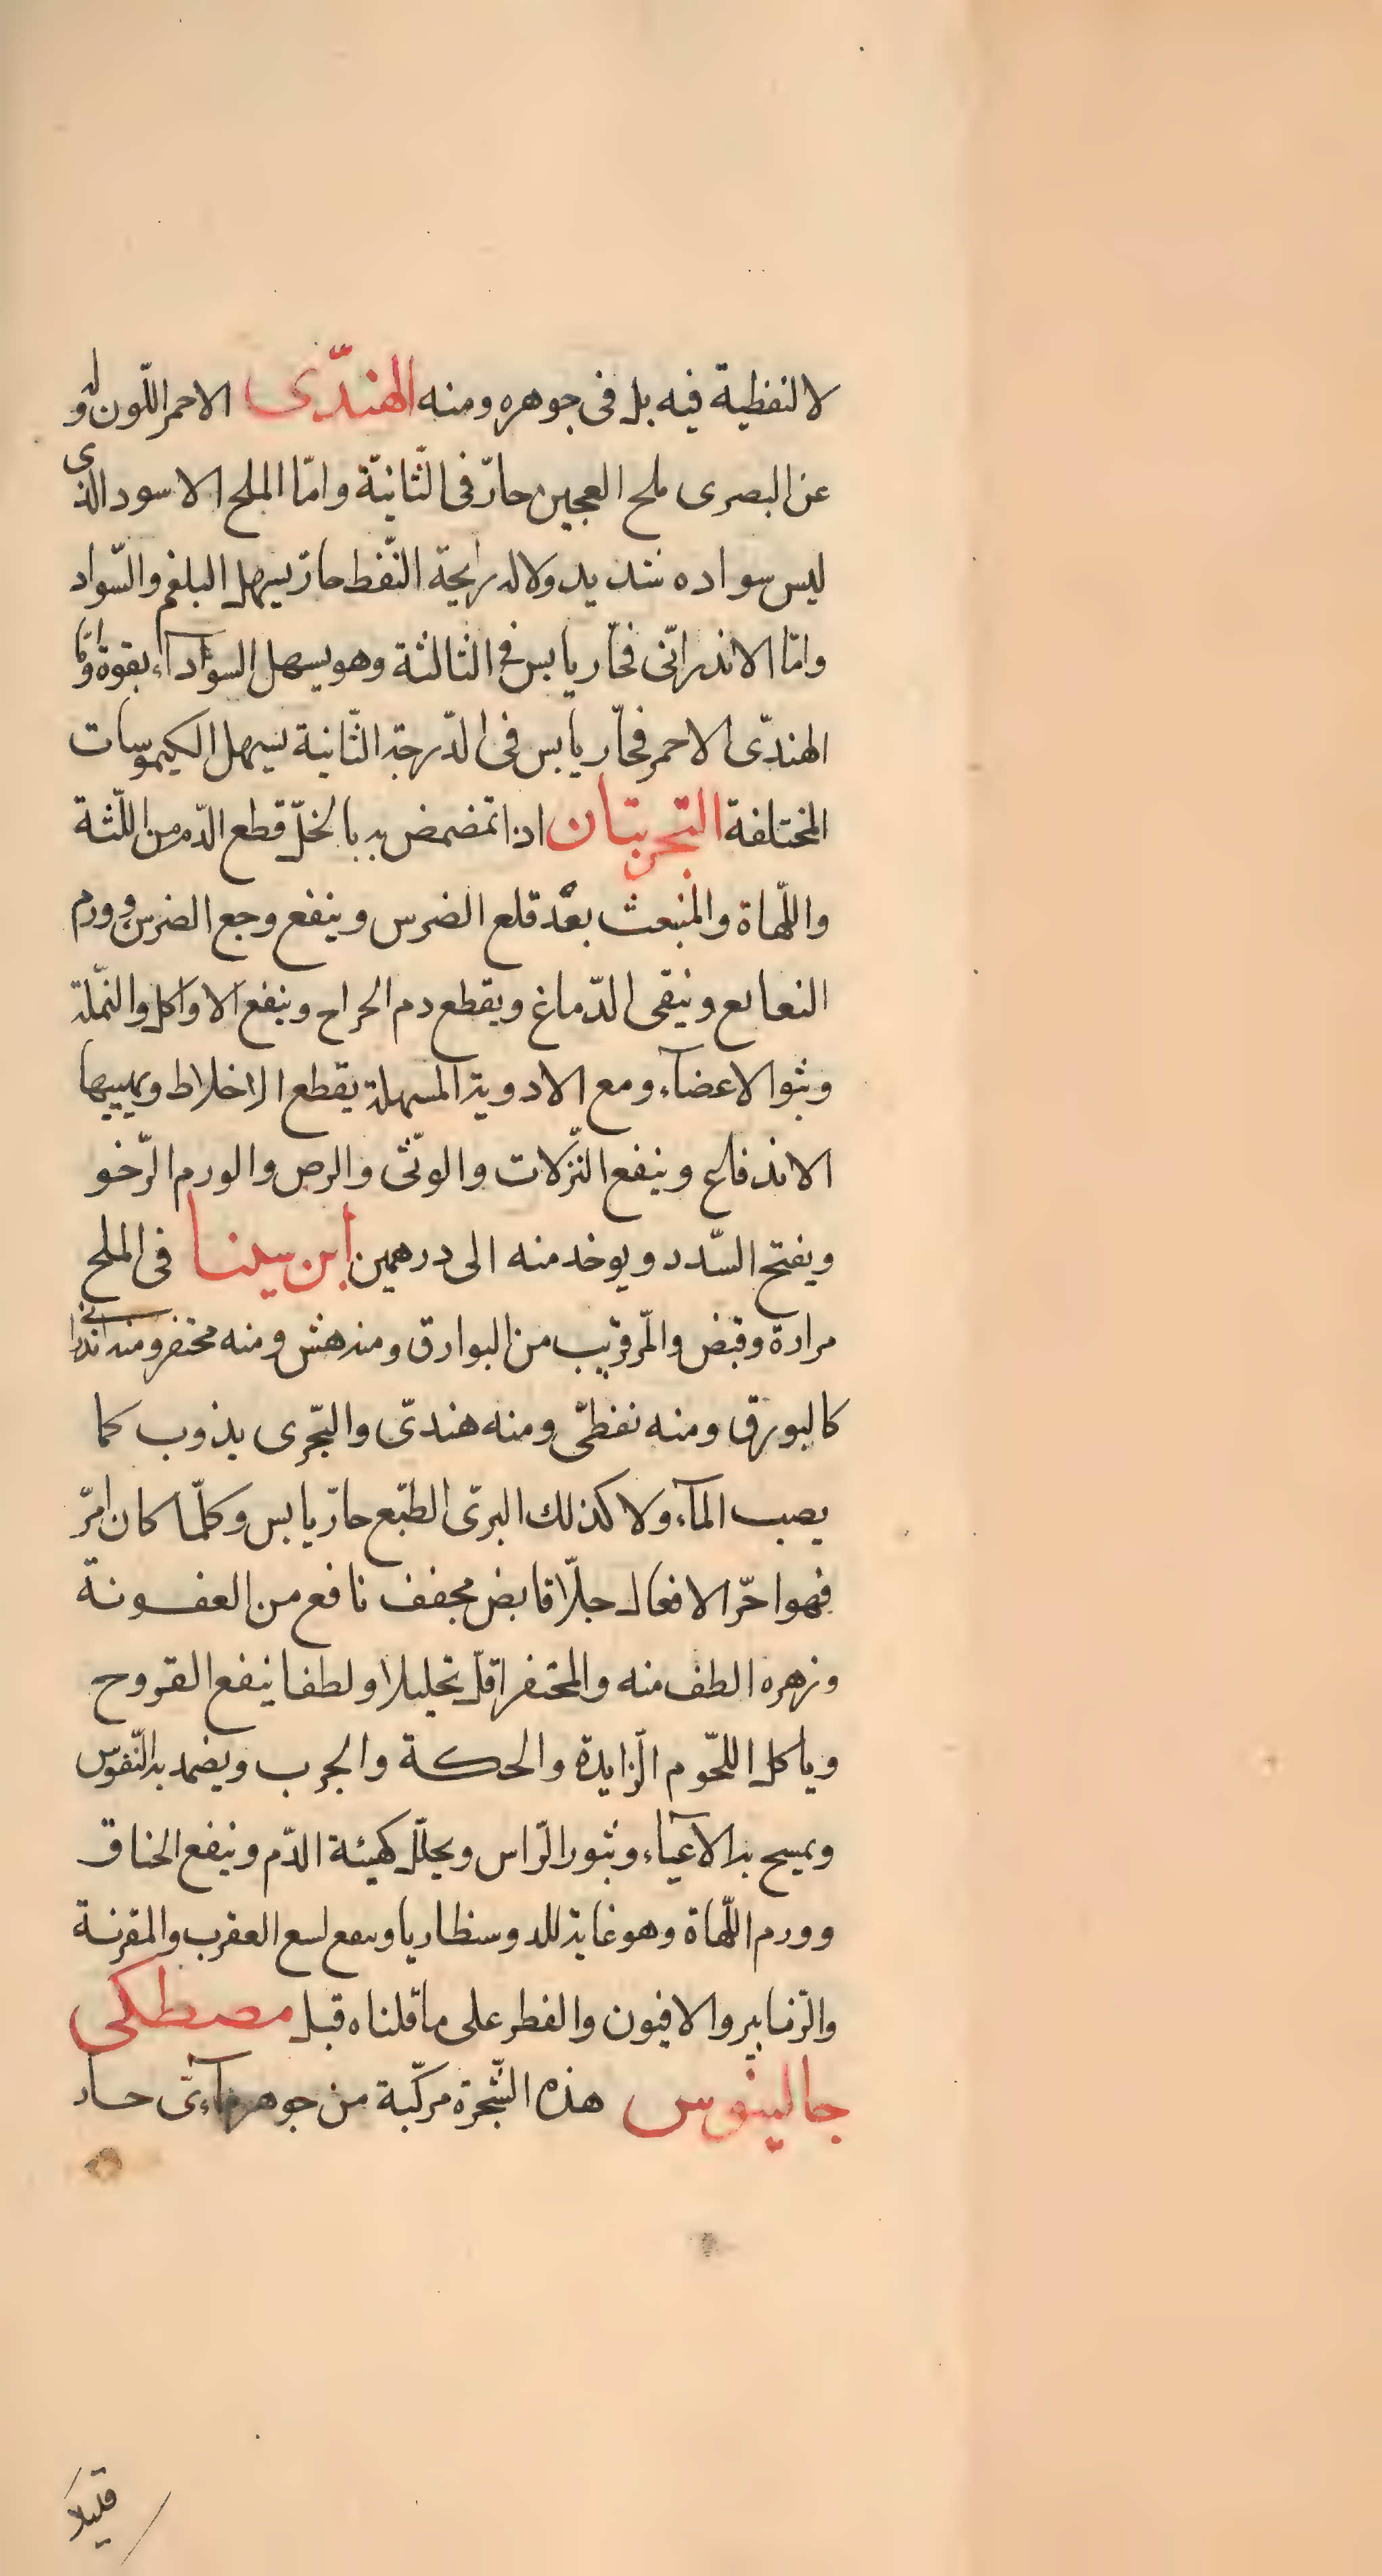 لا لنفطية فيه بل فى جوهره ومنه الهندّى الاحمر اللّون وله
عن البصرى ملح العجين حارّ فى الثّانيّة وامّا الملح الاسود الذى
ليس سواده شديد ولا له رايحة النّفط حارّ يسهل البلغم والسّواد
وامّا الاندرانّى فحّار يابس فى الثالثة وهو يسهل السوادآء بقوة وامّا
الهندّى الاحمر فحّار يابس فى الدّرجة الثّانية يسهل الكيموسات
المختلفة التجربتان اذا تمضمض به بالخلّ قطع الدّم من اللّثة
واللّهاة والمنبعث بعد قلع الضرس وينفع وجع الضرس وورم
النعابع وينقى الدّماغ ويقطع دم الجراح وينفع الاواكل والنّملة
وبثوا الاعضآء ومع الادوية المسهلة يقطع الاخلاط ويهييها
الاندفاع وينفع النّزلات والوثى والرص والورم الرّخو
ويفتح السّدد ويوخد منه الى درهمين ابن سينا فى الملح
مرارة وقبض والمّر قريب من البوارق ومنه هش ومنه محتفر ومنه اندرانى
كالبورق ومنه نفطىّ ومنه هندىّ والبّحرى يذوب كما
يصب المآء ولا كذلك البرىّ الطبّع حارّ يابس وكلّما كان امرّ
فهو احّر الافعال جلّا قابض مجفف نافع من العفونة
وزهره الطف منه والمحتفر اقلّ تحليلا ولطفا ينفع القروح
وياكل اللحّوم الّزايدة والحكة والجرب ويضمد به النّقرس
ويمسح به الآعياء وبثور الرّاس ويحلّل كهيئة الدّم وينفع الخناق
وورم اللّهاة وهو غاية للدوسنطاريا وينفع لسع العقرب والمقرنة
والزّنابير والافيون والفطر على ما قلناه قبل مصطكى
جالينوس هذه الشّجرة مركّبة من جوهر مآءىّ حار
قليلا